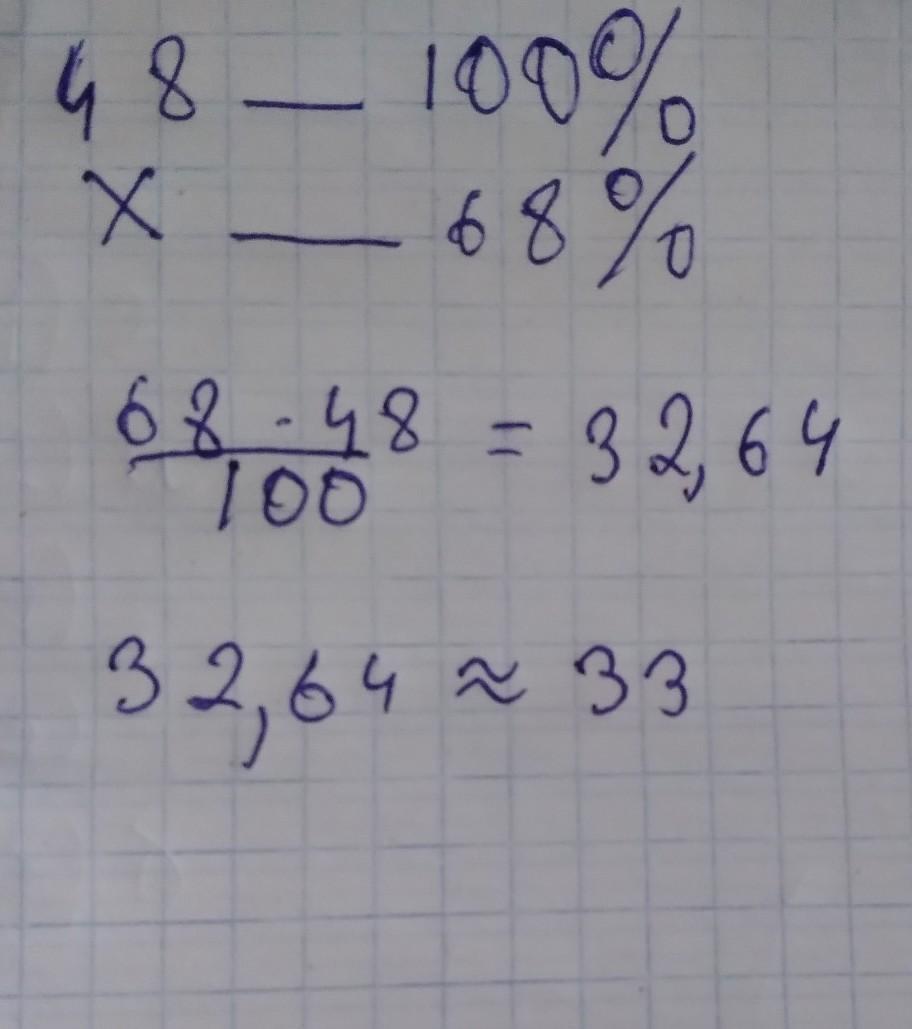 48 — 100%
X — 68%
68 · 48
100
= 32,64
32,64 ≈ 33